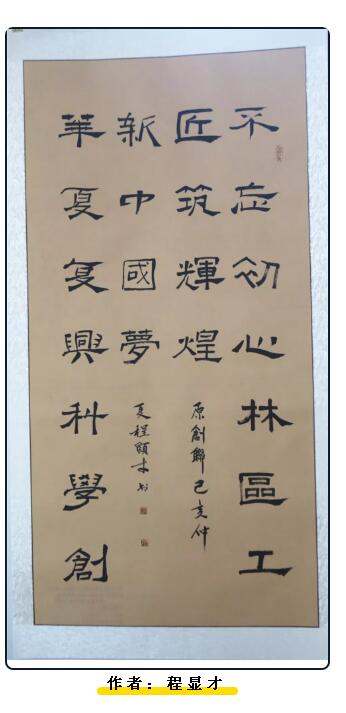 不忘初心林區工
匠筑輝煌
華夏复興科學創
新中國夢
原創聯己亥仲
夏程顯才书
作者：程显才